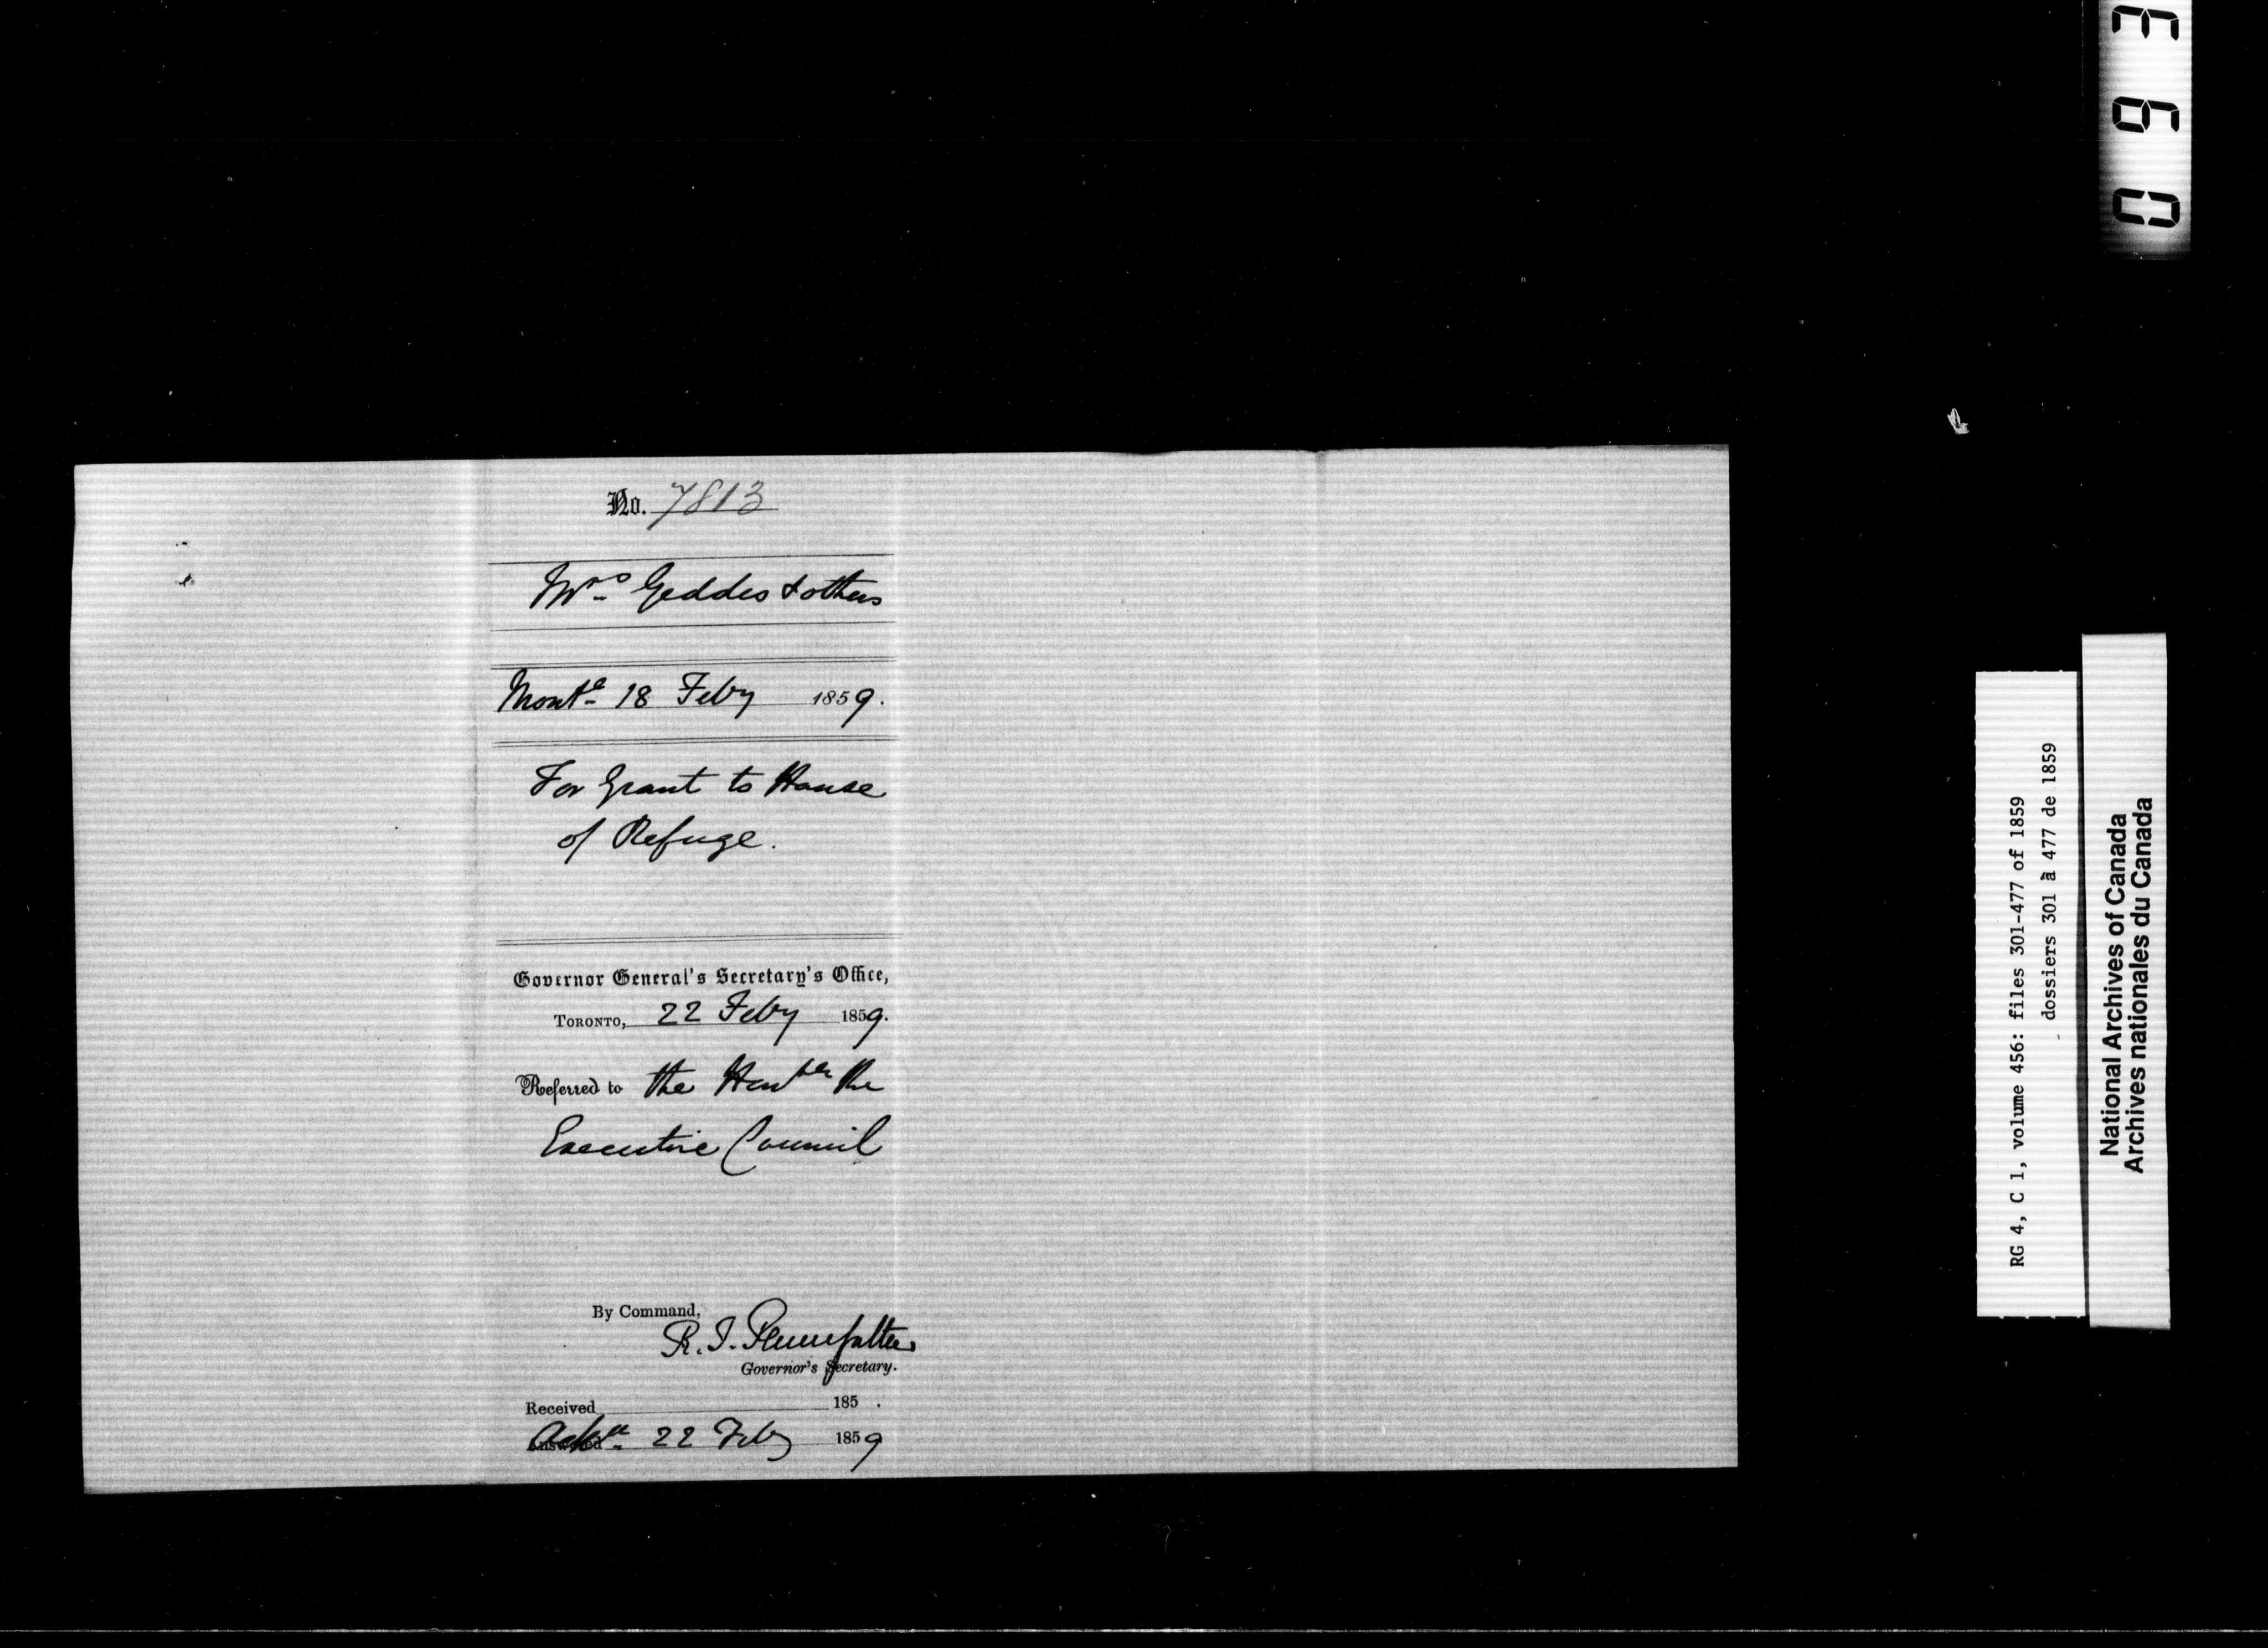 No. 7813
Mrs Geddes & others
Montl 18 Feby 1859.
For Grant to House
of Refuge.
Governor General's Secretary's Office,
TORONTO, 22 Feby 1859.
Referred to the Honble the
Executive Council
By Command,
R. T. Pennefather
Governor's Secretary.
Received 185 .
Ackd 22 Feby 1859
RG 4, C 1, volume 456: files 301-477 of 1859
dossiers 301 à 477 de 1859
National Archives of Canada
Archives nationales du Canada